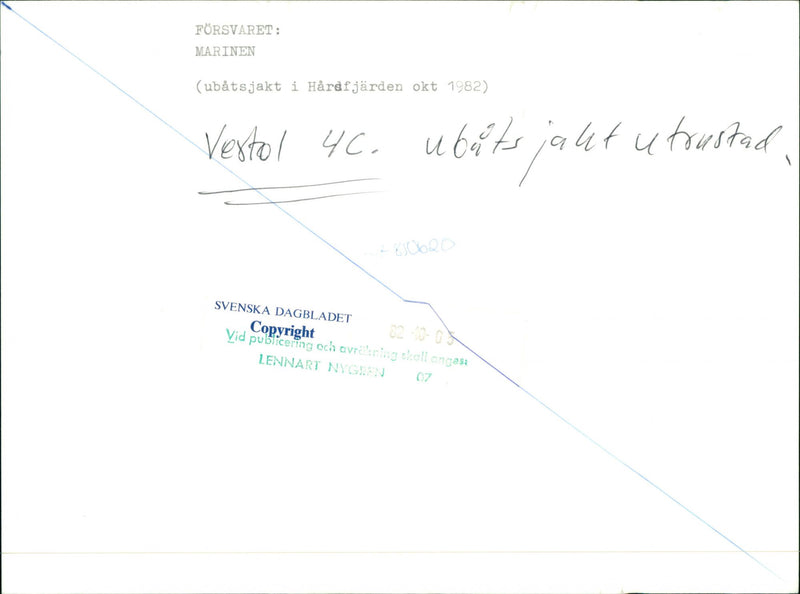 FÖRSVARET:
MARINEN
(ubåtsjakt i Hårdfjärden okt 1982)
4C. ubåtsjakt utrustad.
830620
SVENSKA DAGBLADET
Copyright
82 -10- 05
Vid publicering och avräkning skall anges:
LENNART NYGREN 07